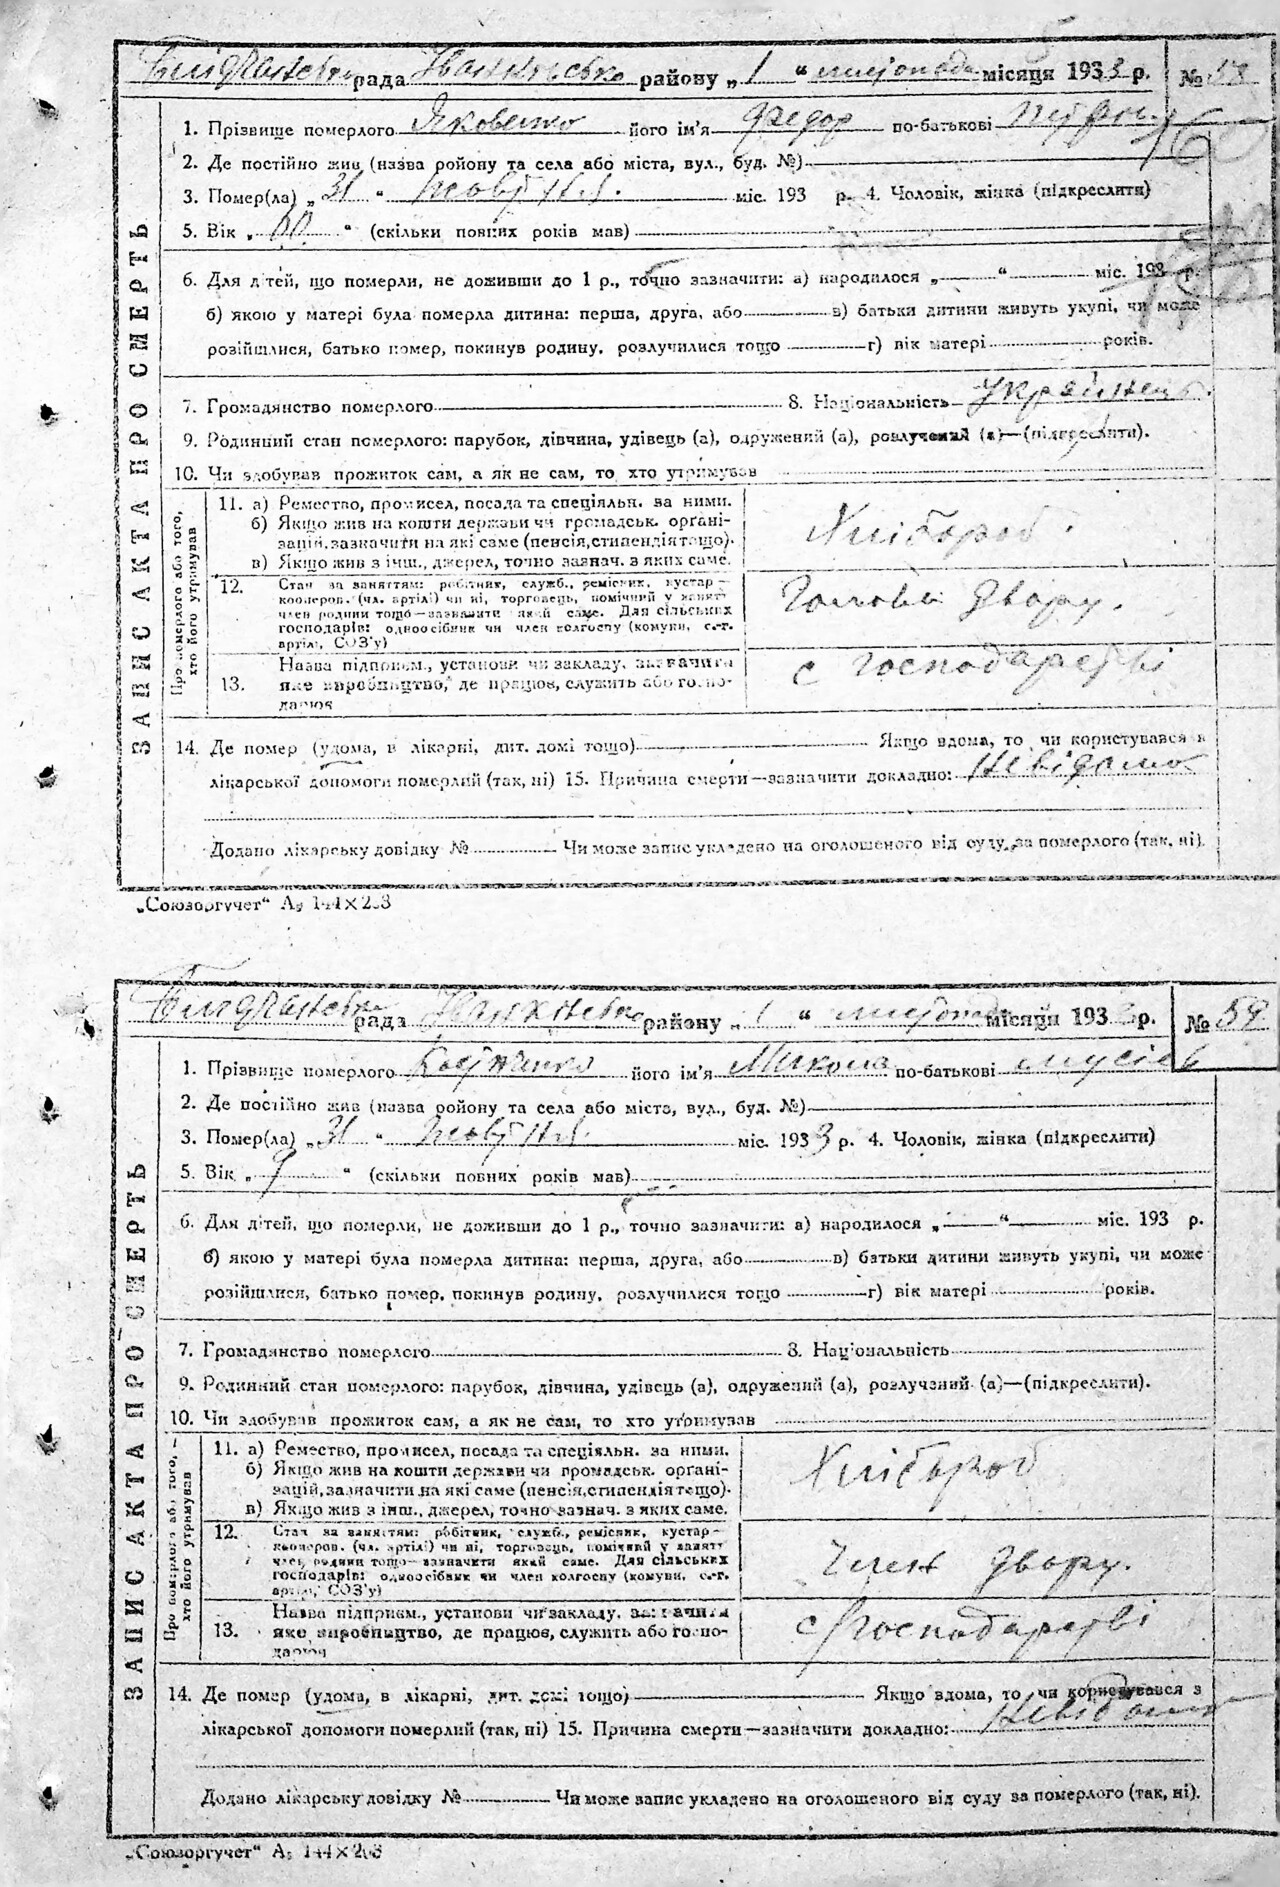 рада Іванківсько району „ 1 “ листопада місяця 1933 р. № 58
1. Прізвище померлого Яковенко його ім'я Федор по-батькові
2. Де постійно жив (назва ройону та села або міста, вул., буд. №)
3. Помер(ла) „ 31 “ жовтня міс. 193 р. 4. Чоловік, жінка (підкреслити)
5. Вік „ 60 “ (скільки повних років мав)
6. Для дітей, що померли, не доживши до 1 р., точно зазначити: а) народилося „ “ міс. 193 р.
б) якою у матері була померла дитина: перша, друга, або в) батьки дитини живуть укупі, чи може
розійшлися, батько помер, покинув родину, розлучилися тощо г) вік матері років.
7. Громадянство померлого 8. Національність Українець.
9. Родинний стан померлого: парубок, дівчина, удівець (а), одружений (а), розлучений (а)—(підкреслити).
10. Чи здобував прожиток сам, а як не сам, то хто утримував
ЗАПИС АКТА ПРО СМЕРТЬ
Про померлого або того, хто його утримував
11. а) Ремество, промисел, посада та спеціяльн. за ними.
б) Якщо жив на кошти держави чи громадськ. орґані-
зацій, зазначити на які саме (пенсія, стипендія тощо).
в) Якщо жив з інш., джерел, точно зазнач. з яких саме.
Хлібороб.
12. Стан за заняттям: робітник, служб., ремісник, кустар—
кооперов. (чл. артілі) чи ні, торговець, помічний у занятт
член родини тощо—зазначити який саме. Для сільських
господарів: одноосібник чи член колгоспу (комуни, с.-г.
артілі, СОЗ'у)
Голова двору.
13. Назва підприєм., установи чи закладу, зазначити
яке виробництво, де працює, служить або госпо-
дарює
с господарстві
14. Де помер (удома, в лікарні, дит. домі тощо) Якщо вдома, то чи користувався з
лікарської допомоги померлий (так, ні) 15. Причина смерти—зазначити докладно: Невідомо
Додано лікарську довідку № Чи може запис укладено на оголошеного від суду за померлого (так, ні).
„Союзоргучет“ А5 144×203
рада Іванківсько району „ 1 “ листопада місяця 193 р. № 59
1. Прізвище померлого його ім'я Микола по-батькові
2. Де постійно жив (назва ройону та села або міста, вул., буд. №)
3. Помер(ла) „ 31 “ жовтня міс. 1933 р. 4. Чоловік, жінка (підкреслити)
5. Вік „ 9 “ (скільки повних років мав)
6. Для дітей, що померли, не доживши до 1 р., точно зазначити: а) народилося „ “ міс. 193 р.
б) якою у матері була померла дитина: перша, друга, або в) батьки дитини живуть укупі, чи може
розійшлися, батько помер, покинув родину, розлучилися тощо г) вік матері років.
7. Громадянство померлого 8. Національність
9. Родинний стан померлого: парубок, дівчина, удівець (а), одружений (а), розлучений (а)—(підкреслити).
10. Чи здобував прожиток сам, а як не сам, то хто утримував
ЗАПИС АКТА ПРО СМЕРТЬ
Про померлого або того, хто його утримував
11. а) Ремество, промисел, посада та спеціяльн. за ними.
б) Якщо жив на кошти держави чи громадськ. орґані-
зацій, зазначити на які саме (пенсія, стипендія тощо).
в) Якщо жив з інш., джерел, точно зазнач. з яких саме.
Хлібороб
12. Стан за заняттям: робітник, служб., ремісник, кустар—
кооперов. (чл. артілі) чи ні, торговець, помічний у занятт
член родини тощо—зазначити який саме. Для сільських
господарів: одноосібник чи член колгоспу (комуни, с.-г.
артілі, СОЗ'у)
Член двору.
13. Назва підприєм., установи чи закладу, зазначити
яке виробництво, де працює, служить або госпо-
дарює
с господарстві
14. Де помер (удома, в лікарні, дит. домі тощо) Якщо вдома, то чи користувався з
лікарської допомоги померлий (так, ні) 15. Причина смерти—зазначити докладно: Невідомо
Додано лікарську довідку № Чи може запис укладено на оголошеного від суду за померлого (так, ні).
„Союзоргучет“ А5 144×203